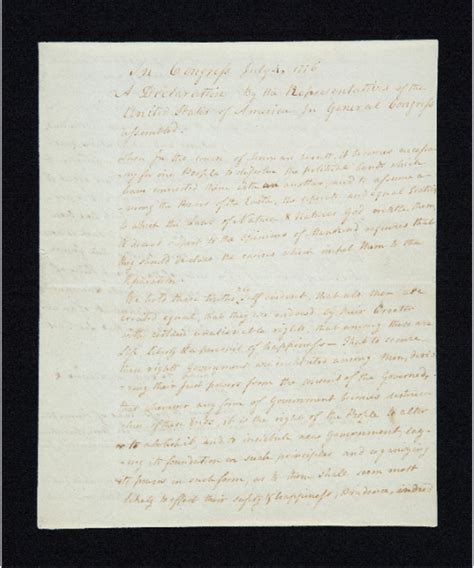 In Congress July 4, 1776
A Declaration by the Representatives of the
United States of America In General Congress
assembled.
When in the course of human events, it becomes necessa-
ry for one People to dissolve the political bands which
have connected them with another, and to assume a-
mong the Powers of the Earth, the separate and equal Station
to which the Laws of Nature & Natures God entitle them,
a decent respect to the opinions of Mankind requires that
they should declare the causes which impel them to the
Separation.
We hold these truths self evident, that all men are
created equal, that they are endowed by their Creator
with certain unalienable rights, that among these are
Life, Liberty & the pursuit of happiness— That to secure
these rights Governments are instituted among Men, deri-
ving their just powers from the consent of the Governed,
that whenever any form of Government becomes
of these Ends, it is the right of the People to alter
or to abolish it, and to institute new Government, lay-
ing its foundation on such principles and organizing
its powers in such form, as to them shall seem most
likely to effect their safety & happiness, Prudence, indeed